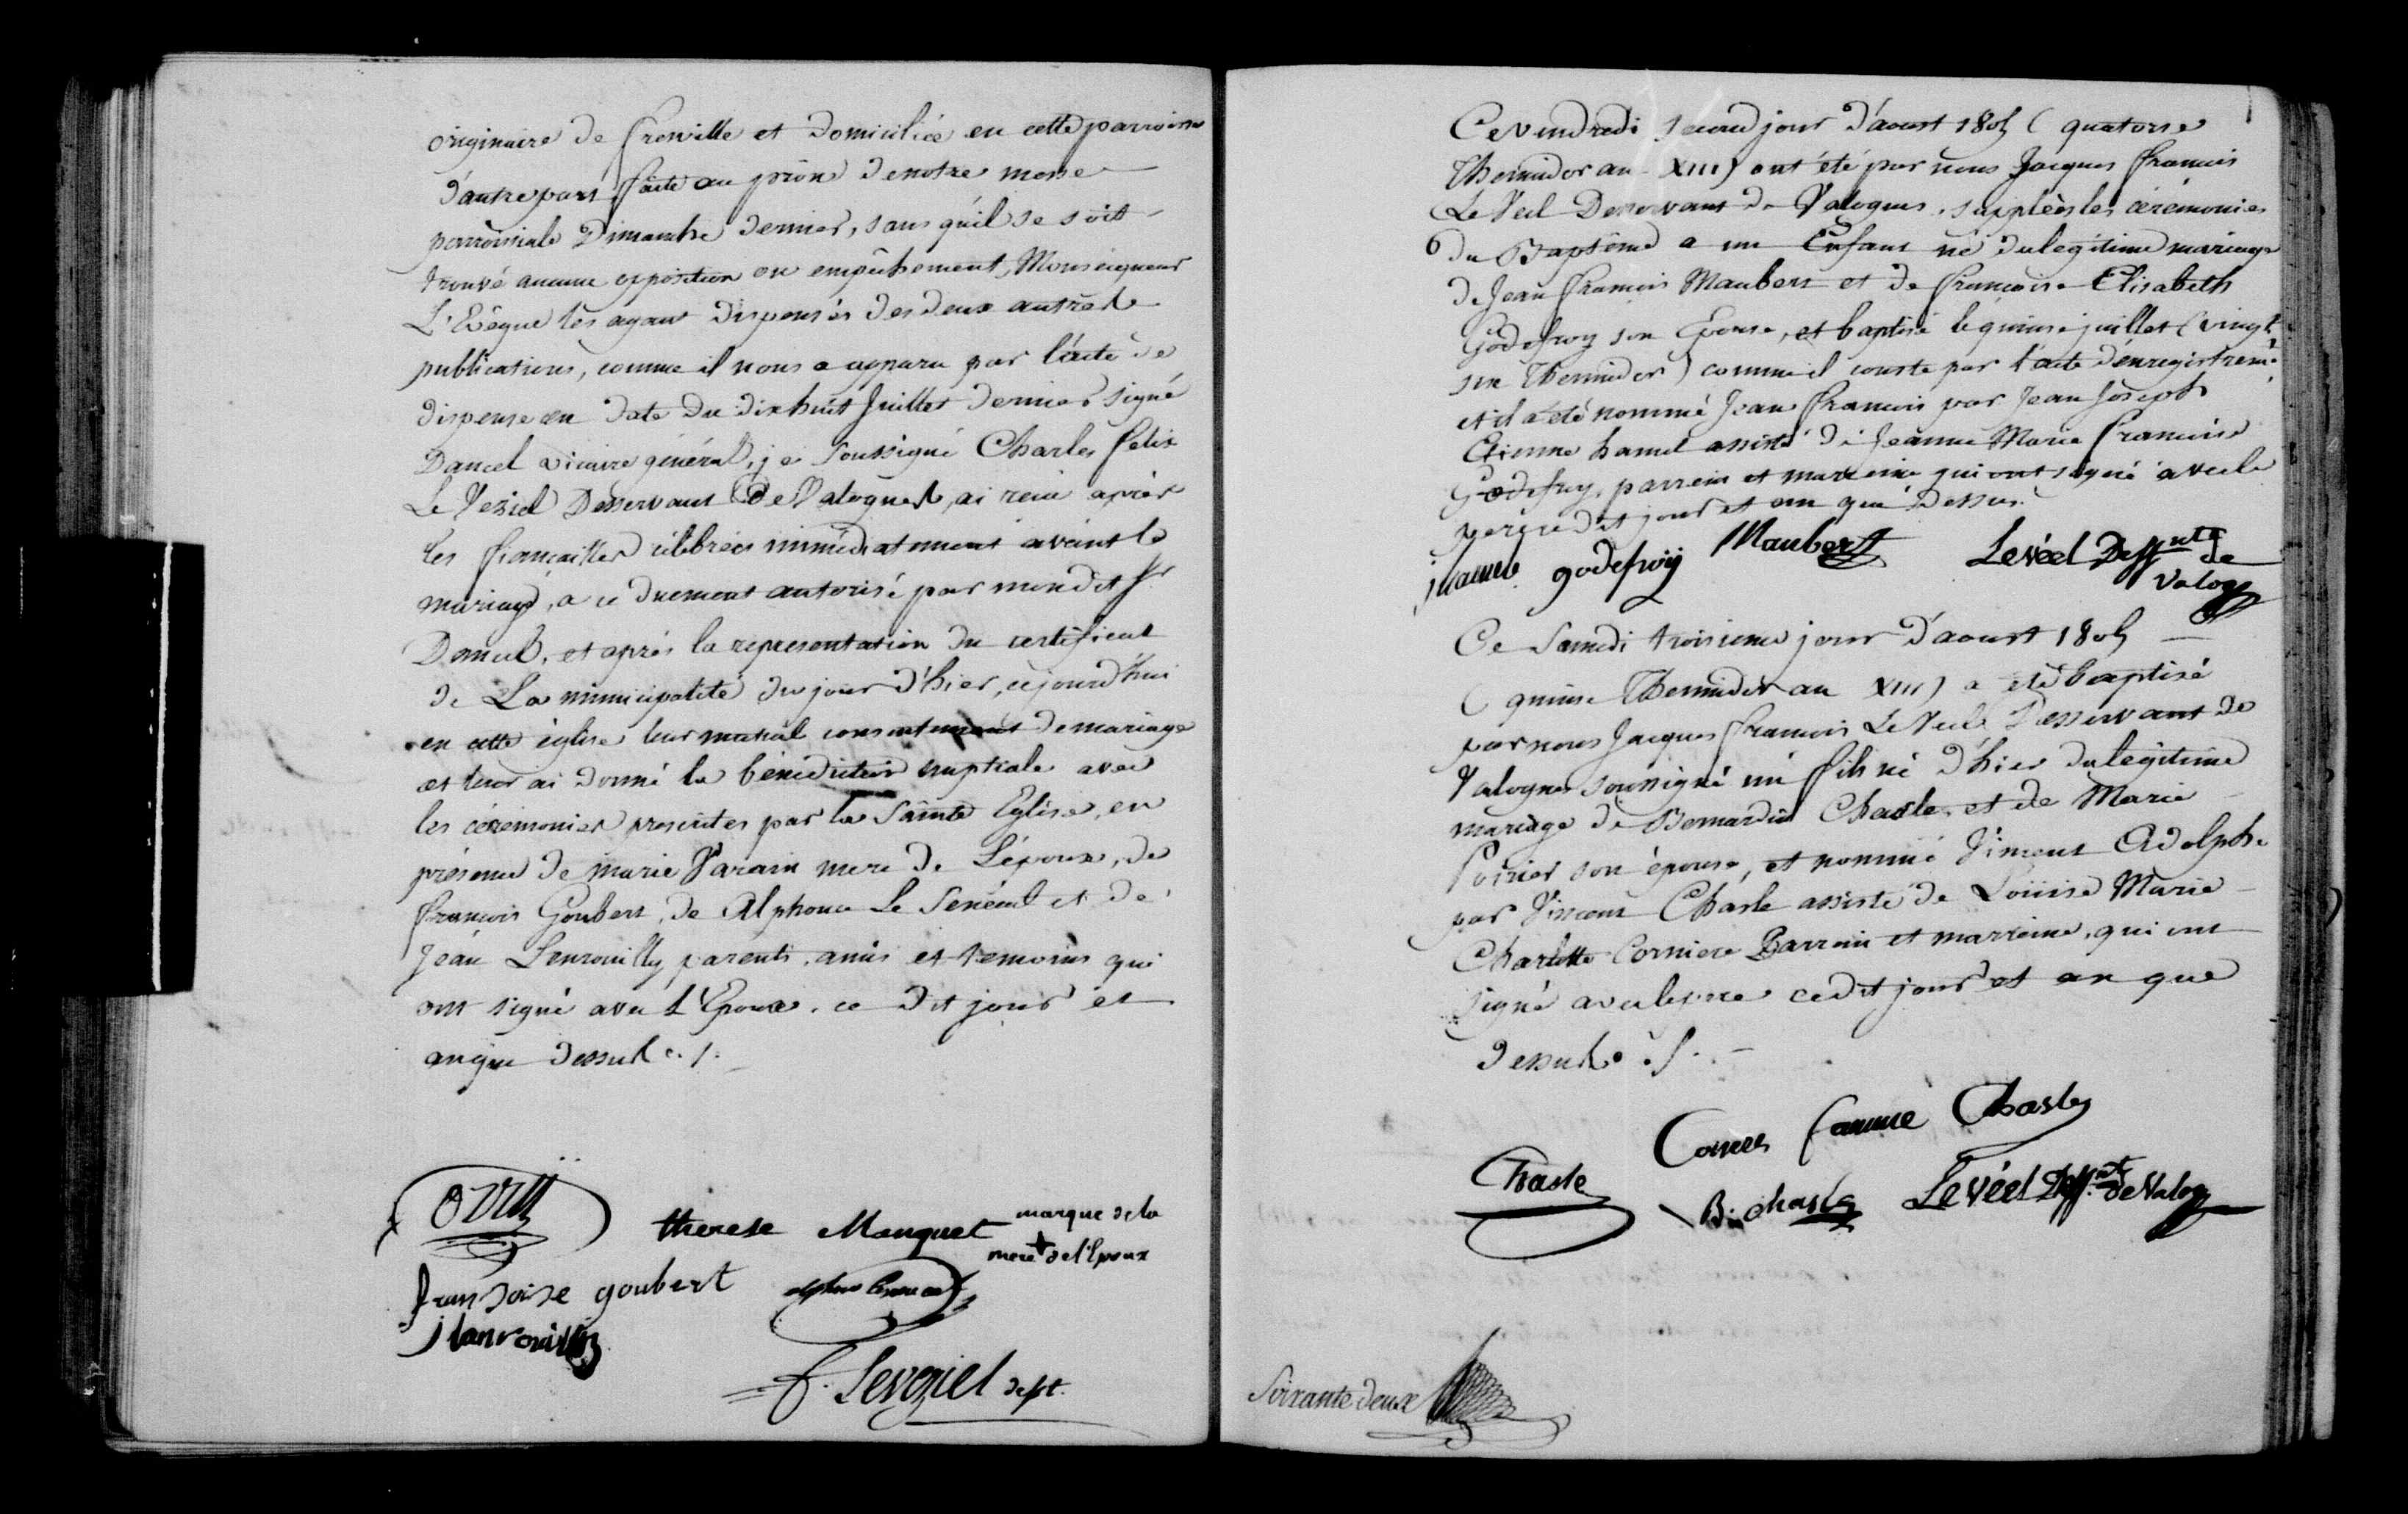 originaire de freville et domiciliée en cette parroisse
d'autre part faite au prône de notre messe
parroissiale Dimanche dernier, sans qu'il se soit
trouvé aucune opposition ou empêchement, Monseigneur
L'Evêque les ayant dispensés des deux autres
publications, comme il nous a apparu par l'acte de
dispense en date du dix huit Juillet dernier signé
Dancel vicaire général, je soussigné Charles felix
Le Veziel Desservant de Valognes, ai reçu après
les fiançailles célébrées immédiatement avant le
mariage, a ce duement autorisé par mondit Sr
Dancel, et après la representation du certificat
de La municipalité du jour d'hier, cejourd'hui
en cette église leur mutuel consentement de mariage
et leur ai donné la bénédiction nuptiale avec
les cérémonies prescrites par la Sainte Eglise, en
présence de marie Varain mere de L'époux, de
françois Goubert, de Alphonse Le Senécal et de
Jean Lenrouilly parents, amis et temoins qui
ont signé avec L'Epoux. ce dit jour et
an que dessus ./.
therese Manquet
marque de la
mere + de l'Epoux
fransoise goubert
j lanrouilly
f. Leveziel desst.
Ce vendredi second jour d'aoust 1805 ( quatorze
Thermidor an XIII) ont été par nous Jacques francois
Le Veel Desservant de Valognes, suppléés les cérémonies
du Baptême a un Enfant né du légitime mariage
de Jean francois Maubert et de francoise Elisabeth
Godefroy son Epouse, et baptisé le quinze juillet (vingt
six Thermidor) comme il conste par l'acte d'enregistremt.
et il a été nommé Jean francois par Jean Joseph
Etienne hamel assisté de Jeanne Marie francoise
Godefroy, parrein et marreine qui ont signé avec le
pere cedit jour et an que dessus.
j hamel godefroy Maubert Levéel Dessnt de
Valog
Ce Samedi troisieme jour d'aoust 1805
( quinze Thermidor an XIII) a été baptisé
par nous Jacques francois Le Veel Desservant de
Valognes soussigné un fils né d'hier du légitime
mariage de Bernardin Chasle et de Marie
Poirier son épouse, et nommé Vincent Adolphe
par Vincent Chasle assisté de Louise Marie
Charlotte Corniere Parrein et marreine, qui ont
signé avec le pere cedit jour et an que
dessus ./.
famme Chasle
Chasle B. chasle Levéel Dessnt de Valog
Soixante deux